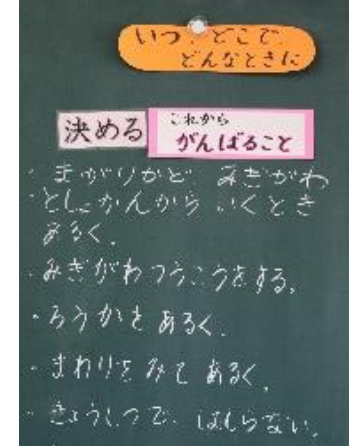 いつ、どこで、
どんなときに
決める
これから
がんばること
・まがりかど みぎがわ
としょかんから いくとき
あるく。
・みぎがわつうこうをする。
・ろうかを あるく。
・まわりをみて あるく。
・きょうしつで はしらない。